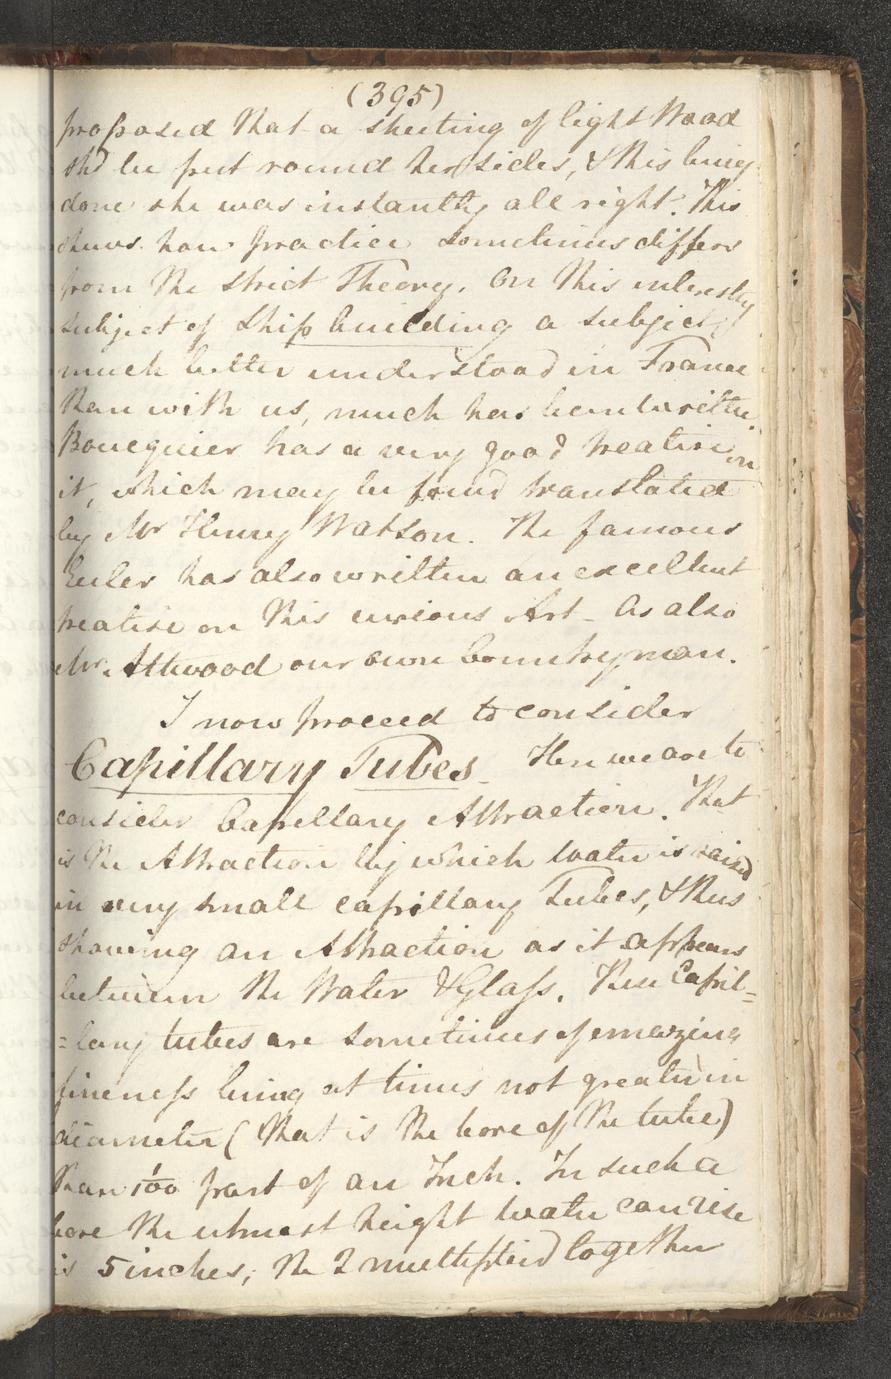 (395)
proposed that a sheeting of light Wood
shd be put round her sides, & this being
done she was instantly all right. This
shews how practice sometimes differs
from the strict Theory. On this interesting
subject of Ship building a subject
much better understood in France
than with us, much has been written
has a very good treatise on
it, which may be found translated
by Mr Henry Watson. The famous
Euler has also written an excellent
treatise on this curious Art - As also
Mr. Attwood our own Countryman.
I now proceed to consider
Capillary Tubes - Here we are to
consider Capillary Attraction. That
is the Attraction by which water is raised
in very small capillary Tubes, & thus
showing an Attraction as it appears
between the Water & Glass. These Capil=
=lary tubes are sometimes of amazing
fineness being at times not greater in
diameter (that is the bore of the tube)
than 1/100 part of an Inch. In such a
bore the utmost height water can rise
is 5 inches; the 2 multiplied together